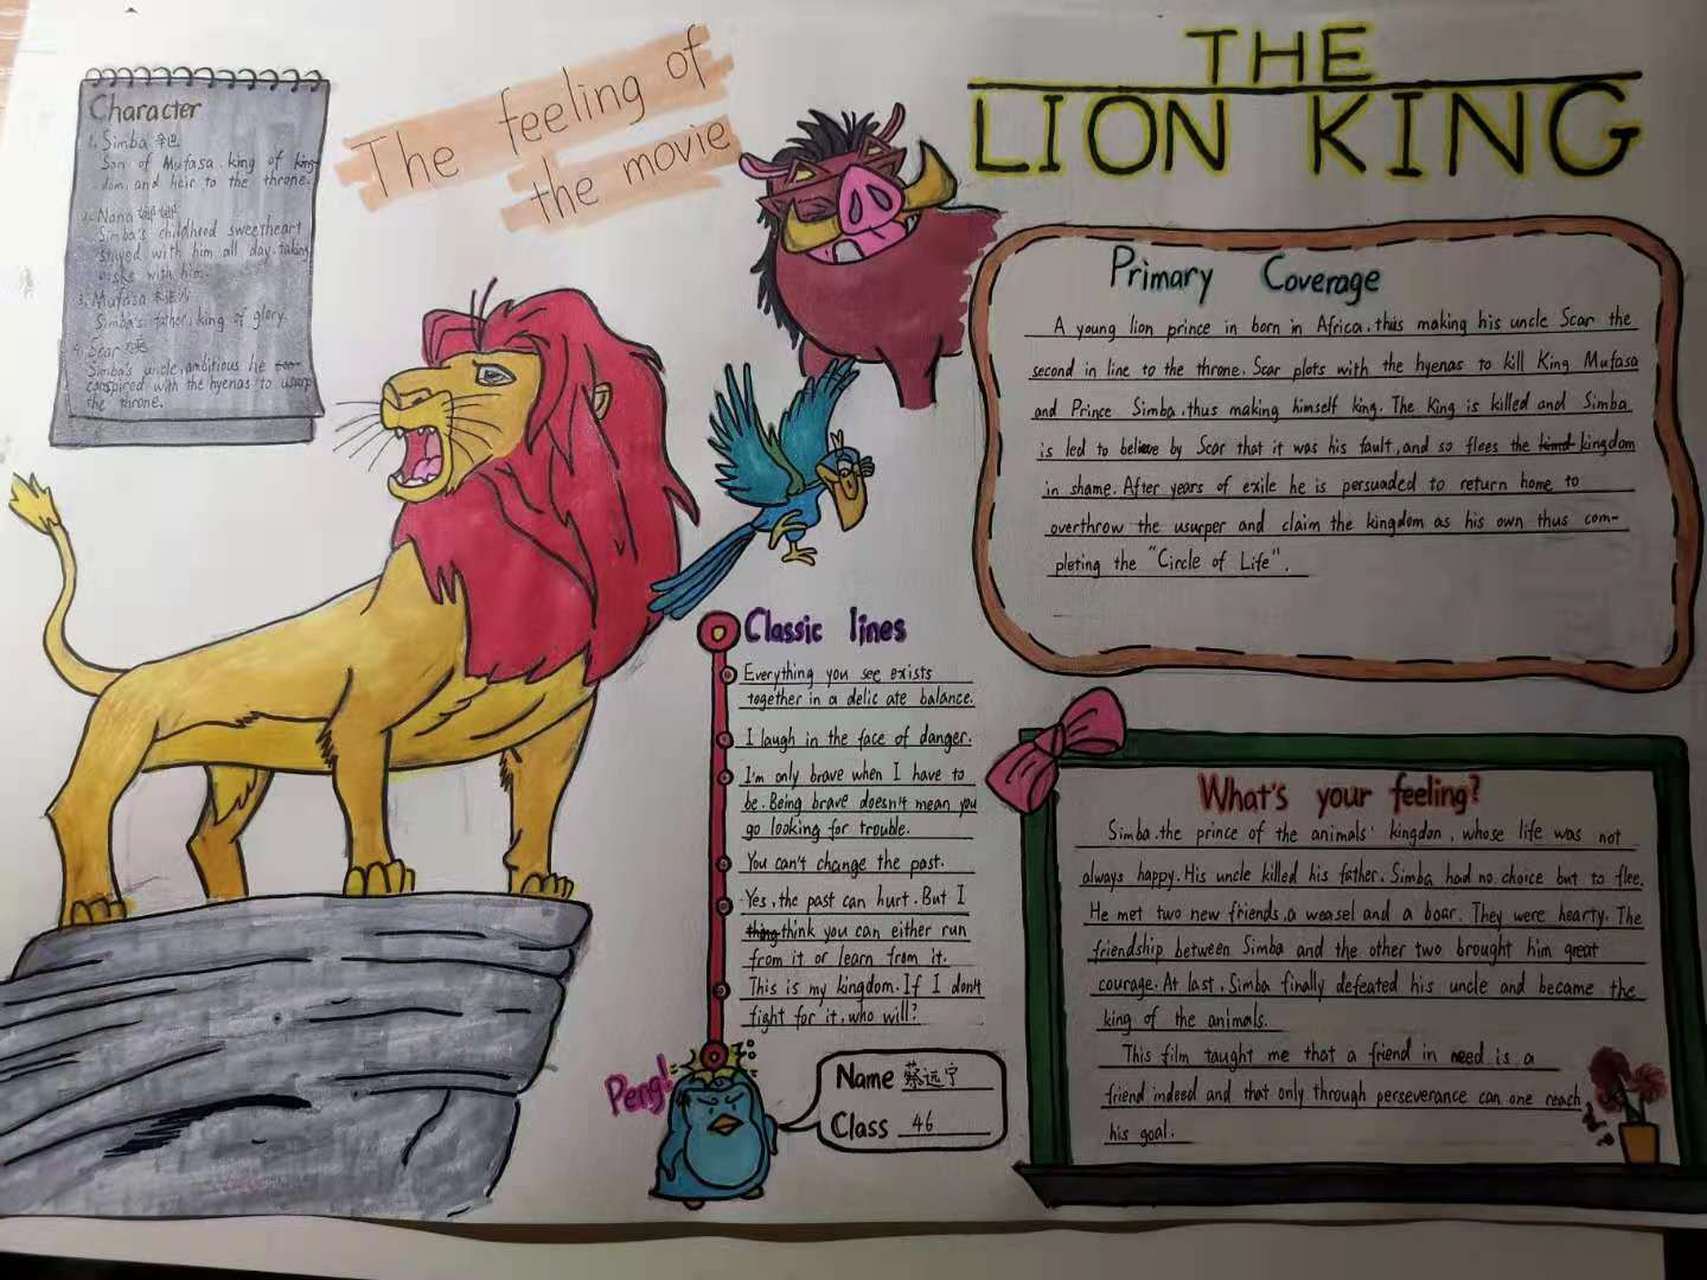 THE
LION KING
The feeling of
the movie
Character
1. Simba 辛巴
Son of Mufasa. king of king-
dom, and heir to the throne.
2. Nana 娜娜
Simba's childhood sweetheart
stayed with him all day. taking
with him.
3. Mufasa 木法沙
Simba's father, king of glory.
4. Scar 刀疤
Simba's uncle, ambitious he
conspired with the hyenas to usurp
the throne.
Primary Coverage
A young lion prince in born in Africa, thus making his uncle Scar the
second in line to the throne. Scar plots with the hyenas to kill King Mufasa
and Prince Simba, thus making himself king. The King is killed and Simba
is led to believe by Scar that it was his fault, and so flees the kind kingdom
in shame. After years of exile he is persuaded to return home to
overthrow the usurper and claim the kingdom as his own thus com-
pleting the "Circle of Life".
Classic lines
Everything you see exists
together in a delic ate balance.
I laugh in the face of danger.
I'm only brave when I have to
be. Being brave doesn't mean you
go looking for trouble.
You can't change the past.
Yes, the past can hurt. But I
thing think you can either run
from it or learn from it.
This is my kingdom. If I don't
fight for it, who will?
What's your feeling?
Simba. the prince of the animals' kingdon, whose life was not
always happy. His uncle killed his father. Simba had no choice but to flee.
He met two new friends, a weasel and a boar. They were hearty. The
friendship between Simba and the other two brought him great
courage. At last, Simba finally defeated his uncle and became the
king of the animals.
This film taught me that a friend in need is a
friend indeed and that only through perseverance can one reach
his goal.
Peng!
Name 蔡远宁
Class 46